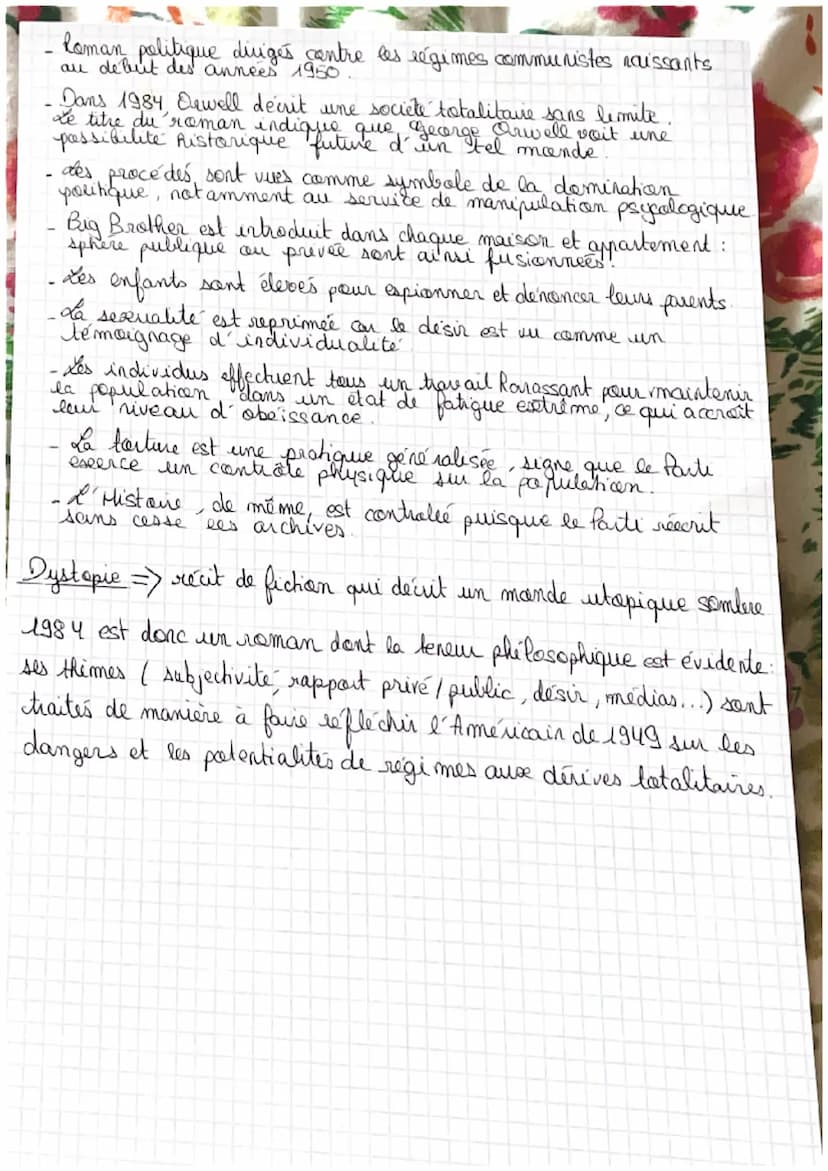 - Roman politique dirigés contre les régimes communistes naissants
au début des années 1950.
- Dans 1984, Orwell décrit une société totalitaire sans limite.
Le titre du roman indique que, George Orwell voit une
possibilité historique future d'un tel monde.
- Les procédés, sont vues comme symbole de la domination
politique, notamment au service de manipulation psycologique
- Big Brother est introduit dans chaque maison et appartement :
sphère publique ou privée sont ainsi fusionnées.
- Les enfants sont élevés pour espionner et dénoncer leurs parents.
- La sexualité est reprimée car le désir est vu comme un
témoignage d'individualité
- Les individus effectuent tous un travail harassant pour maintenir
la population dans un état de fatigue extrême, ce qui accroît
leur niveau d'obéissance.
- La torture est une pratique généralisée, signe que le Parti
exerce un contrôle physique sur la population.
- L'Histoire, de même, est controlée puisque le Parti réécrit
sans cesse les archives.
Dystopie => récit de fiction qui décrit un monde utopique sombre
1984 est donc un roman dont la teneur philosophique est évidente:
ses thèmes ( subjectivité, rapport privé / public, désir, médias...) sont
traités de manière à faire réfléchir l'Américain de 1949 sur les
dangers et les potentialités de régimes aux dérives totalitaires.